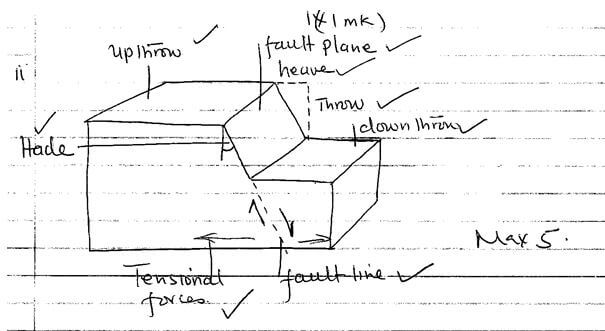 1(x1mk)
ii
upthrow ✓
fault plane ✓
heave ✓
Throw ✓
down throw ✓
✓
Hade
Max 5.
Tensional
forces ✓
fault line ✓